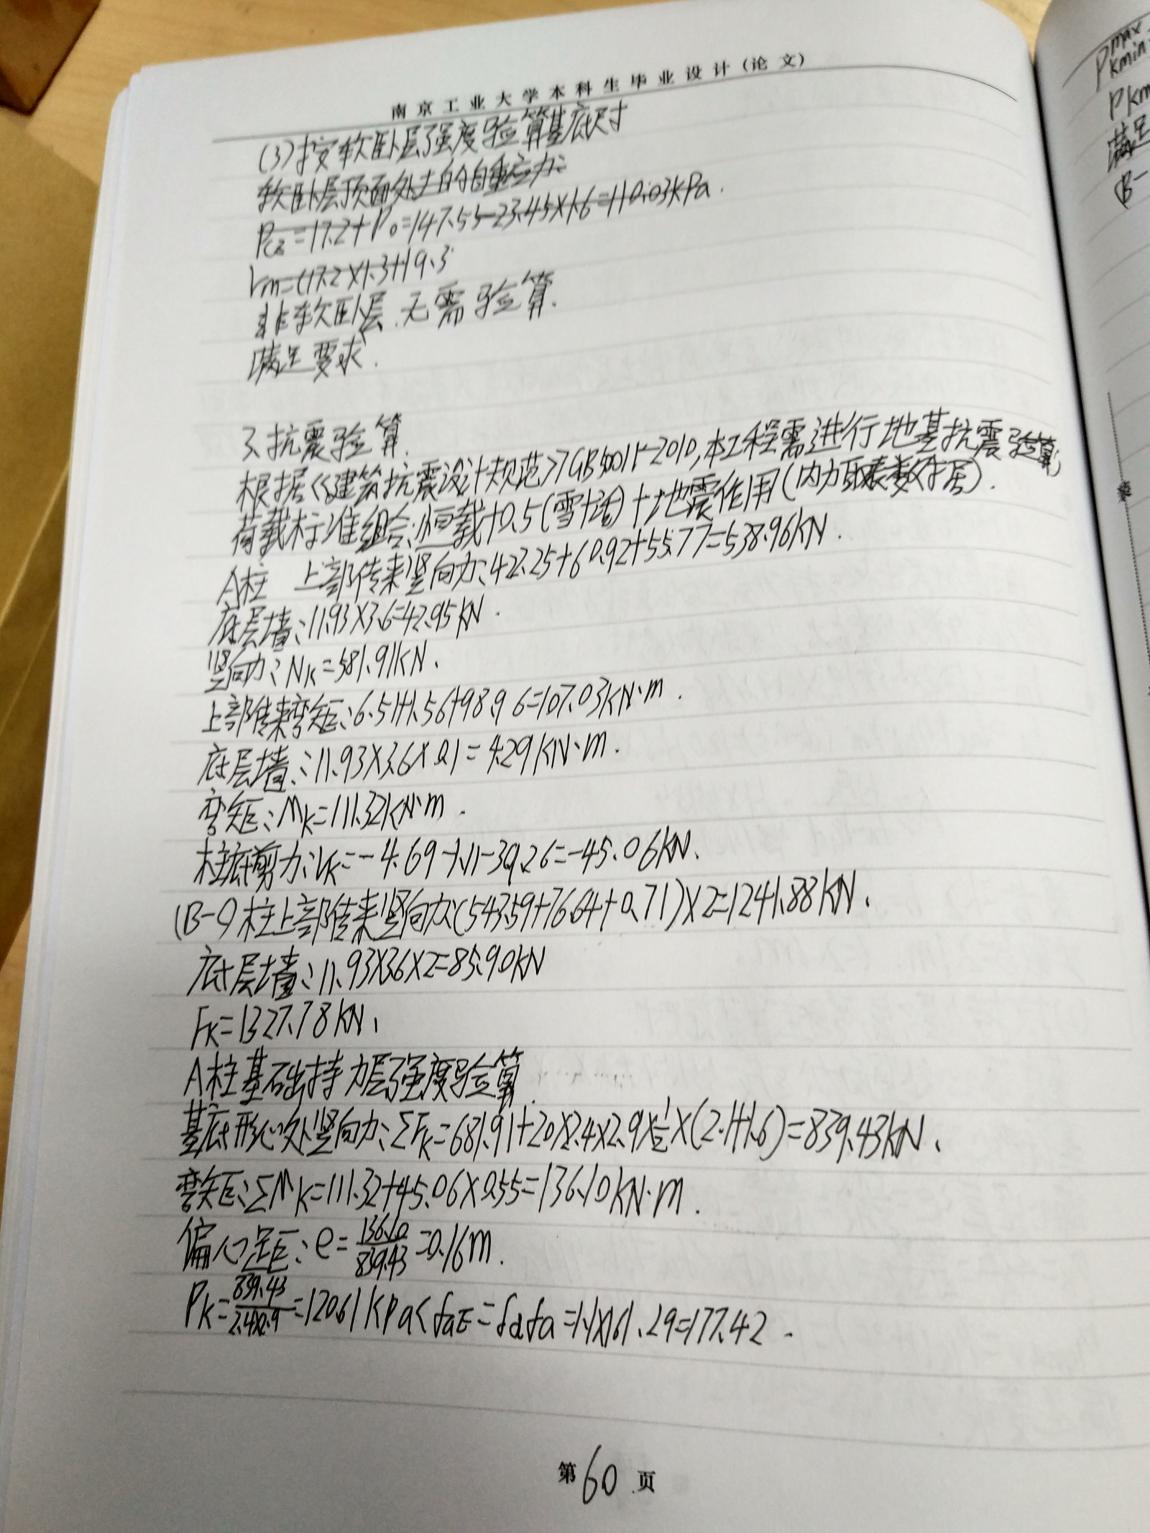 南京工业大学本科生毕业设计(论文)
(3)按软卧层强度验算基底尺寸
软卧层顶面处土的自重应力:
Pcz=17.2+P0=147.55-23.45×1.6=110.03kPa.
rm=(17.2×1.3+19.3
非软卧层,无需验算.
满足要求.
3.抗震验算.
根据《建筑抗震设计规范》GB50011-2010,本工程需进行地基抗震验算,
荷载标准组合:恒载+0.5(雪+活)+地震作用(内力取表数 ).
A柱 上部传来竖向力:422.25+60.92+55.77=538.96kN.
底层墙:11.93×3.6=42.95kN.
竖向力:NK=581.91kN.
上部传来弯矩:6.51+1.56+98.96=107.03kN·m.
底层墙:11.93×3.6×0.1=4.29kN·m.
弯矩:MK=111.32kN·m.
柱底剪力:VK=-4.69-1.11-39.26=-45.06kN.
(B-C)柱上部传来竖向力:(543.59+76.64+0.71)×2=1241.88kN.
底层墙:11.93×3.6×2=85.90kN
FK=1327.78kN.
A柱基础持力层强度验算.
基底形心处竖向力:ΣFK=681.91+20×2.4×2.9×½×(2.1+1.6)=839.43kN.
弯矩:ΣMK=111.32+45.06×0.55=136.10kN·m.
偏心距:e=136.10/839.43=0.16m.
PK=839.43/2.4×2.9=120.61kPa<faE=ζafa=1.1×161.29=177.42.
第60页
Pkmax
kmin
Pkm
满足
(B-